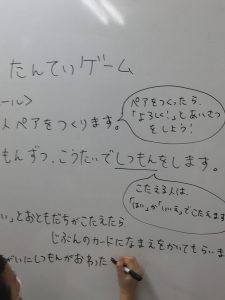 たんていゲーム
ール>
ペアをつくったら、
「よろしく!」とあいさつ
をしよう!
人ペアをつくります。
もんずつ、こうたいでしつもんをします。
こたえる人は、
「はい」か「いいえ」でこたえます
い」とおともだちがこたえたら
じぶんのカードになまえをかいてもらいま
がいにしつもんがおわった